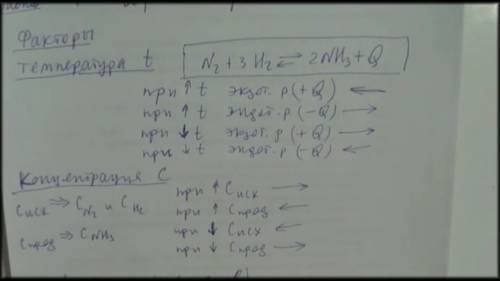 Факторы
температура t
N₂ + 3H₂ ⇄ 2NH₃ + Q
при ↑ t экзот. р (+Q) ←
при ↑ t эндот. р (−Q) →
при ↓ t экзот. р (+Q) →
при ↓ t эндот. р (−Q) ←
Концентрация С
Cисх ⇒ C N₂ и C H₂
Cпрод ⇒ C NH₃
при ↑ Cисх →
при ↑ Cпрод ←
при ↓ Cисх ←
при ↓ Cпрод →